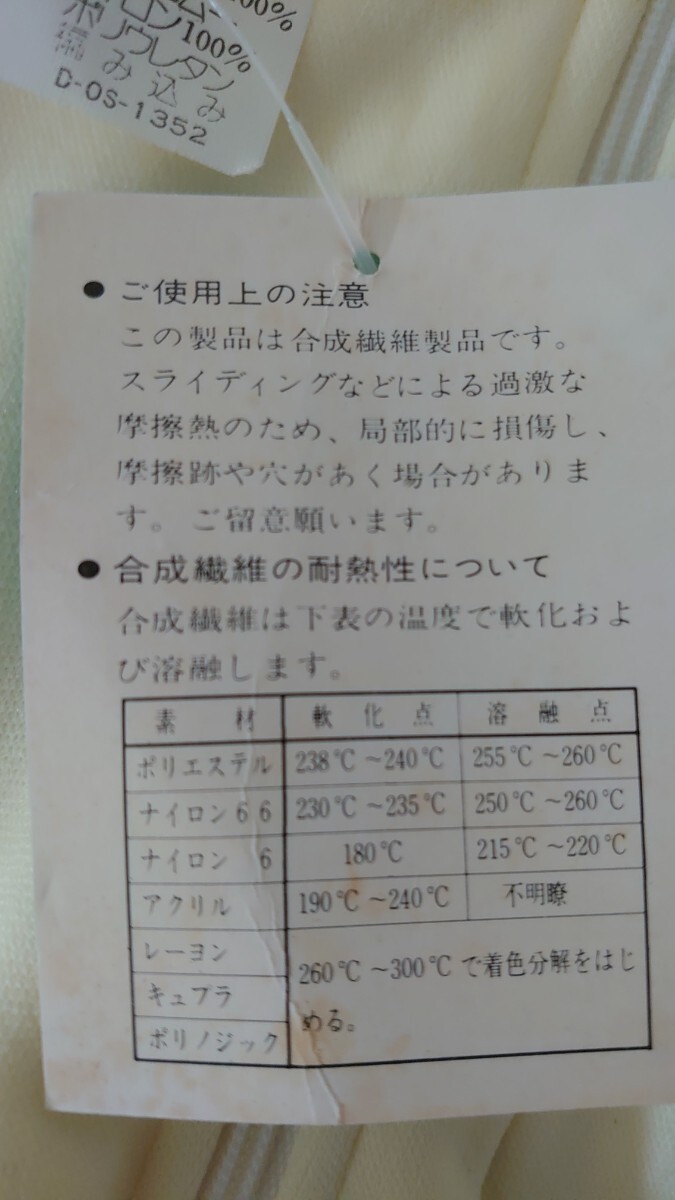 100%
ロン100%
ポリウレタン
編み込み
D-OS-1352
● ご使用上の注意
この製品は合成繊維製品です。
スライディングなどによる過激な
摩擦熱のため、局部的に損傷し、
摩擦跡や穴があく場合がありま
す。ご留意願います。
● 合成繊維の耐熱性について
合成繊維は下表の温度で軟化およ
び溶融します。
素材 軟化点 溶融点
ポリエステル 238℃～240℃ 255℃～260℃
ナイロン66 230℃～235℃ 250℃～260℃
ナイロン 6 180℃ 215℃～220℃
アクリル 190℃～240℃ 不明瞭
レーヨン
キュプラ
ポリノジック
260℃～300℃で着色分解をはじ
める。